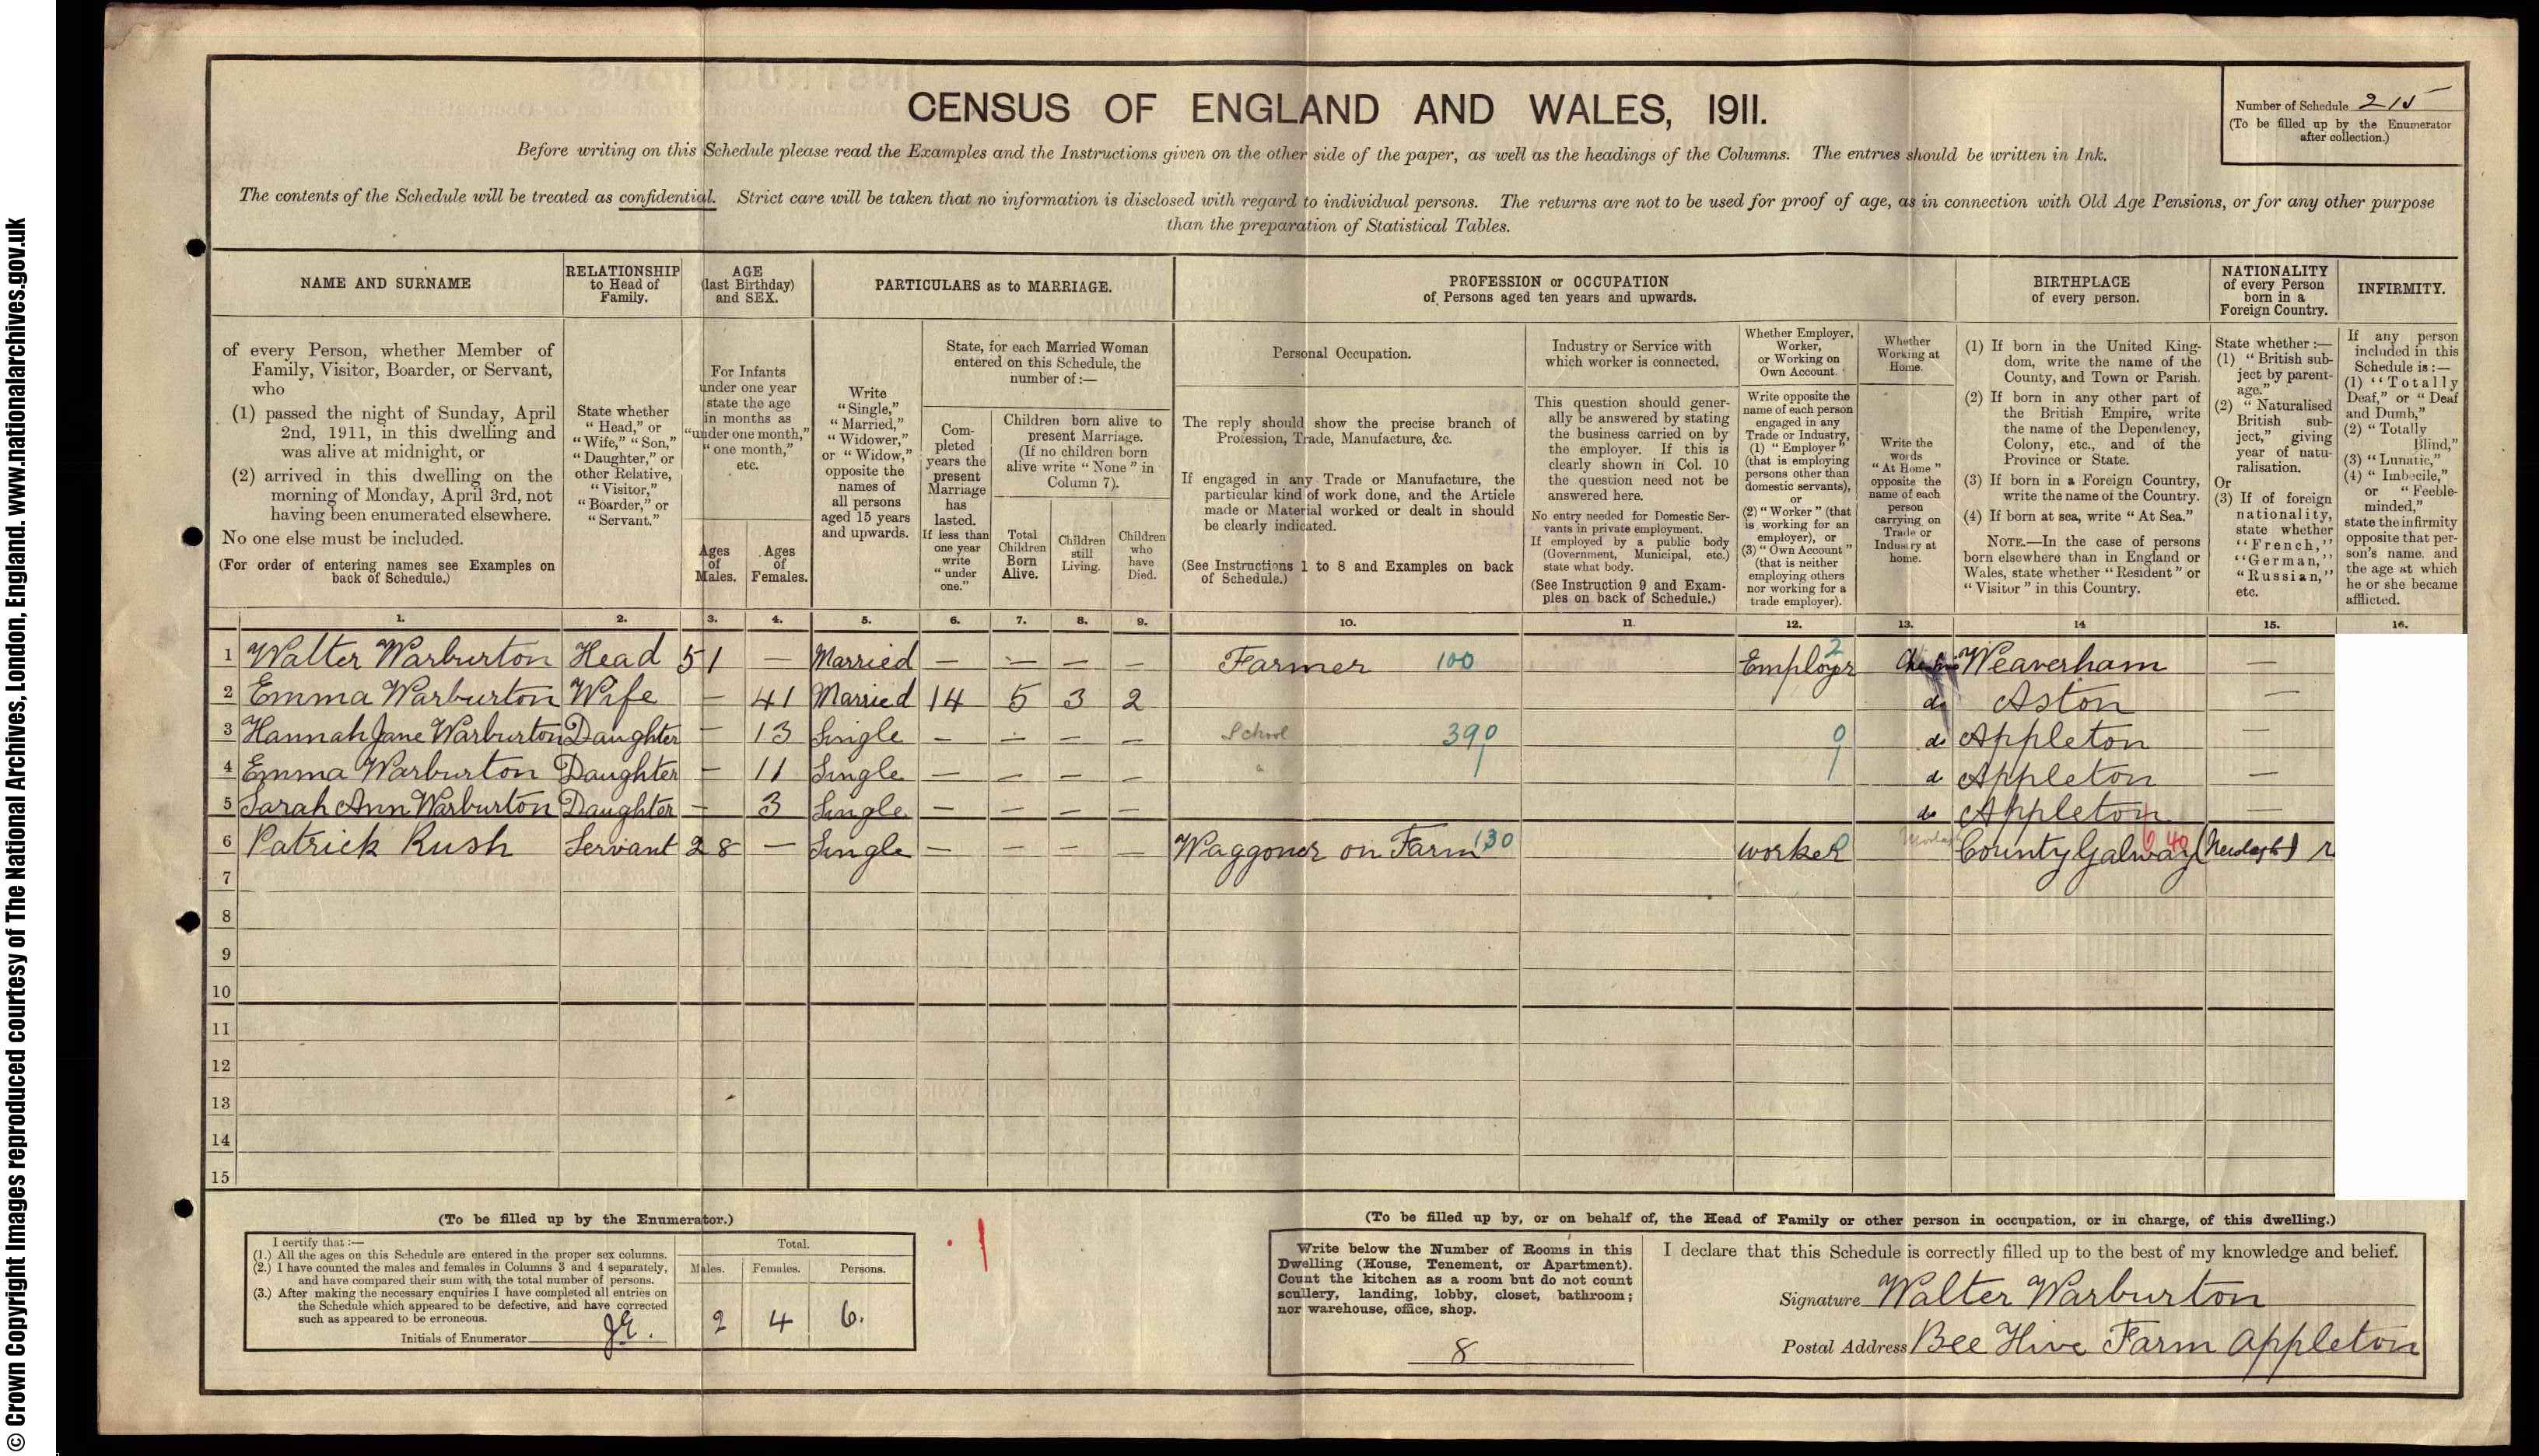 © Crown Copyright Images reproduced courtesy of The National Archives, London, England. www.nationalarchives.gov.uk
CENSUS OF ENGLAND AND WALES, 1911.
Number of Schedule 215
(To be filled up by the Enumerator
after collection.)
Before writing on this Schedule please read the Examples and the Instructions given on the other side of the paper, as well as the headings of the Columns. The entries should be written in Ink.
The contents of the Schedule will be treated as confidential. Strict care will be taken that no information is disclosed with regard to individual persons. The returns are not to be used for proof of age, as in connection with Old Age Pensions, or for any other purpose
than the preparation of Statistical Tables.
NAME AND SURNAME
of every Person, whether Member of
Family, Visitor, Boarder, or Servant,
who
(1) passed the night of Sunday, April
2nd, 1911, in this dwelling and
was alive at midnight, or
(2) arrived in this dwelling on the
morning of Monday, April 3rd, not
having been enumerated elsewhere.
No one else must be included.
(For order of entering names see Examples on
back of Schedule.)
RELATIONSHIP
to Head of
Family.
State whether
"Head," or
"Wife," "Son,"
"Daughter," or
other Relative,
"Visitor,"
"Boarder," or
"Servant."
AGE
(last Birthday)
and SEX.
For Infants
under one year
state the age
in months as
"under one month,"
"one month,"
etc.
Ages
of
Males.
Ages
of
Females.
PARTICULARS as to MARRIAGE.
Write
"Single,"
"Married,"
"Widower,"
or "Widow,"
opposite the
names of
all persons
aged 15 years
and upwards.
State, for each Married Woman
entered on this Schedule, the
number of :—
Com-
pleted
years the
present
Marriage
has
lasted.
If less than
one year
write
"under
one."
Children born alive to
present Marriage.
(If no children born
alive write "None" in
Column 7).
Total
Children
Born
Alive.
Children
still
Living.
Children
who
have
Died.
PROFESSION or OCCUPATION
of Persons aged ten years and upwards.
Personal Occupation.
The reply should show the precise branch of
Profession, Trade, Manufacture, &c.
If engaged in any Trade or Manufacture, the
particular kind of work done, and the Article
made or Material worked or dealt in should
be clearly indicated.
(See Instructions 1 to 8 and Examples on back
of Schedule.)
Industry or Service with
which worker is connected.
This question should gener-
ally be answered by stating
the business carried on by
the employer. If this is
clearly shown in Col. 10
the question need not be
answered here.
No entry needed for Domestic Ser-
vants in private employment.
If employed by a public body
(Government, Municipal, etc.)
state what body.
(See Instruction 9 and Exam-
ples on back of Schedule.)
Whether Employer,
Worker,
or Working on
Own Account.
Write opposite the
name of each person
engaged in any
Trade or Industry,
(1) "Employer"
(that is employing
persons other than
domestic servants),
or
(2) "Worker" (that
is working for an
employer), or
(3) "Own Account"
(that is neither
employing others
nor working for a
trade employer).
Whether
Working at
Home.
Write the
words
"At Home"
opposite the
name of each
person
carrying on
Trade or
Industry at
home.
BIRTHPLACE
of every person.
(1) If born in the United King-
dom, write the name of the
County, and Town or Parish.
(2) If born in any other part of
the British Empire, write
the name of the Dependency,
Colony, etc., and of the
Province or State.
(3) If born in a Foreign Country,
write the name of the Country.
(4) If born at sea, write "At Sea."
NOTE.—In the case of persons
born elsewhere than in England or
Wales, state whether "Resident" or
"Visitor" in this Country.
NATIONALITY
of every Person
born in a
Foreign Country.
State whether :—
(1) "British sub-
ject by parent-
age."
(2) "Naturalised
British sub-
ject," giving
year of natu-
ralisation.
Or
(3) If of foreign
nationality,
state whether
"French,"
"German,"
"Russian,"
etc.
INFIRMITY.
If any person
included in this
Schedule is :—
(1) "Totally
Deaf," or "Deaf
and Dumb,"
(2) "Totally
Blind,"
(3) "Lunatic,"
(4) "Imbecile,"
or "Feeble-
minded,"
state the infirmity
opposite that per-
son's name. and
the age at which
he or she became
afflicted.
1. 2. 3. 4. 5. 6. 7. 8. 9. 10. 11. 12. 13. 14 15. 16.
1 Walter Warburton Head 51 — Married — — — — Farmer 100 Employer 2 Weaverham —
2 Emma Warburton Wife — 41 Married 14 5 3 2 do Aston —
3 Hannah Jane Warburton Daughter — 13 Single — — — — School 390 0 do Appleton —
4 Emma Warburton Daughter — 11 Single — — — — do Appleton —
5 Sarah Ann Warburton Daughter — 3 Single — — — — do Appleton —
6 Patrick Rush Servant 28 — Single — — — — Waggoner on Farm 130 worker County Galway 640
7
8
9
10
11
12
13
14
15
(To be filled up by the Enumerator.)
I certify that :—
(1.) All the ages on this Schedule are entered in the proper sex columns.
(2.) I have counted the males and females in Columns 3 and 4 separately,
and have compared their sum with the total number of persons.
(3.) After making the necessary enquiries I have completed all entries on
the Schedule which appeared to be defective, and have corrected
such as appeared to be erroneous.
Initials of Enumerator JE.
Total.
Males. Females. Persons.
2 4 6.
(To be filled up by, or on behalf of, the Head of Family or other person in occupation, or in charge, of this dwelling.)
Write below the Number of Rooms in this
Dwelling (House, Tenement, or Apartment).
Count the kitchen as a room but do not count
scullery, landing, lobby, closet, bathroom;
nor warehouse, office, shop.
8
I declare that this Schedule is correctly filled up to the best of my knowledge and belief.
Signature Walter Warburton
Postal Address Bee Hive Farm Appleton